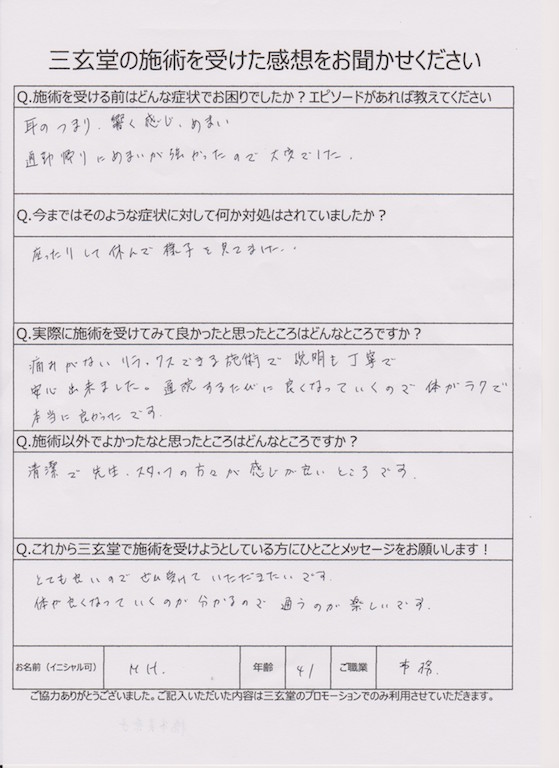 三玄堂の施術を受けた感想をお聞かせください
Q.施術を受ける前はどんな症状でお困りでしたか？エピソードがあれば教えてください
耳のつまり、響く感じ、めまい
通勤帰りにめまいが強かったので大変でした。
Q.今まではそのような症状に対して何か対処はされていましたか？
座ったりして休んで様子を見てました。
Q.実際に施術を受けてみて良かったと思ったところはどんなところですか？
痛みがないリラックスできる施術で説明も丁寧で
安心出来ました。通院するたびに良くなっていくので体がラクで
本当に良かったです。
Q.施術以外でよかったなと思ったところはどんなところですか？
清潔で先生、スタッフの方々が感じが良いところです。
Q.これから三玄堂で施術を受けようとしている方にひとことメッセージをお願いします！
とても良いのでぜひ受けていただきたいです。
体が良くなっていくのが分かるので通うのが楽しいです。
お名前（イニシャル可） M H. 年齢 41 ご職業 事務
ご協力ありがとうございました。ご記入いただいた内容は三玄堂のプロモーションでのみ利用させていただきます。